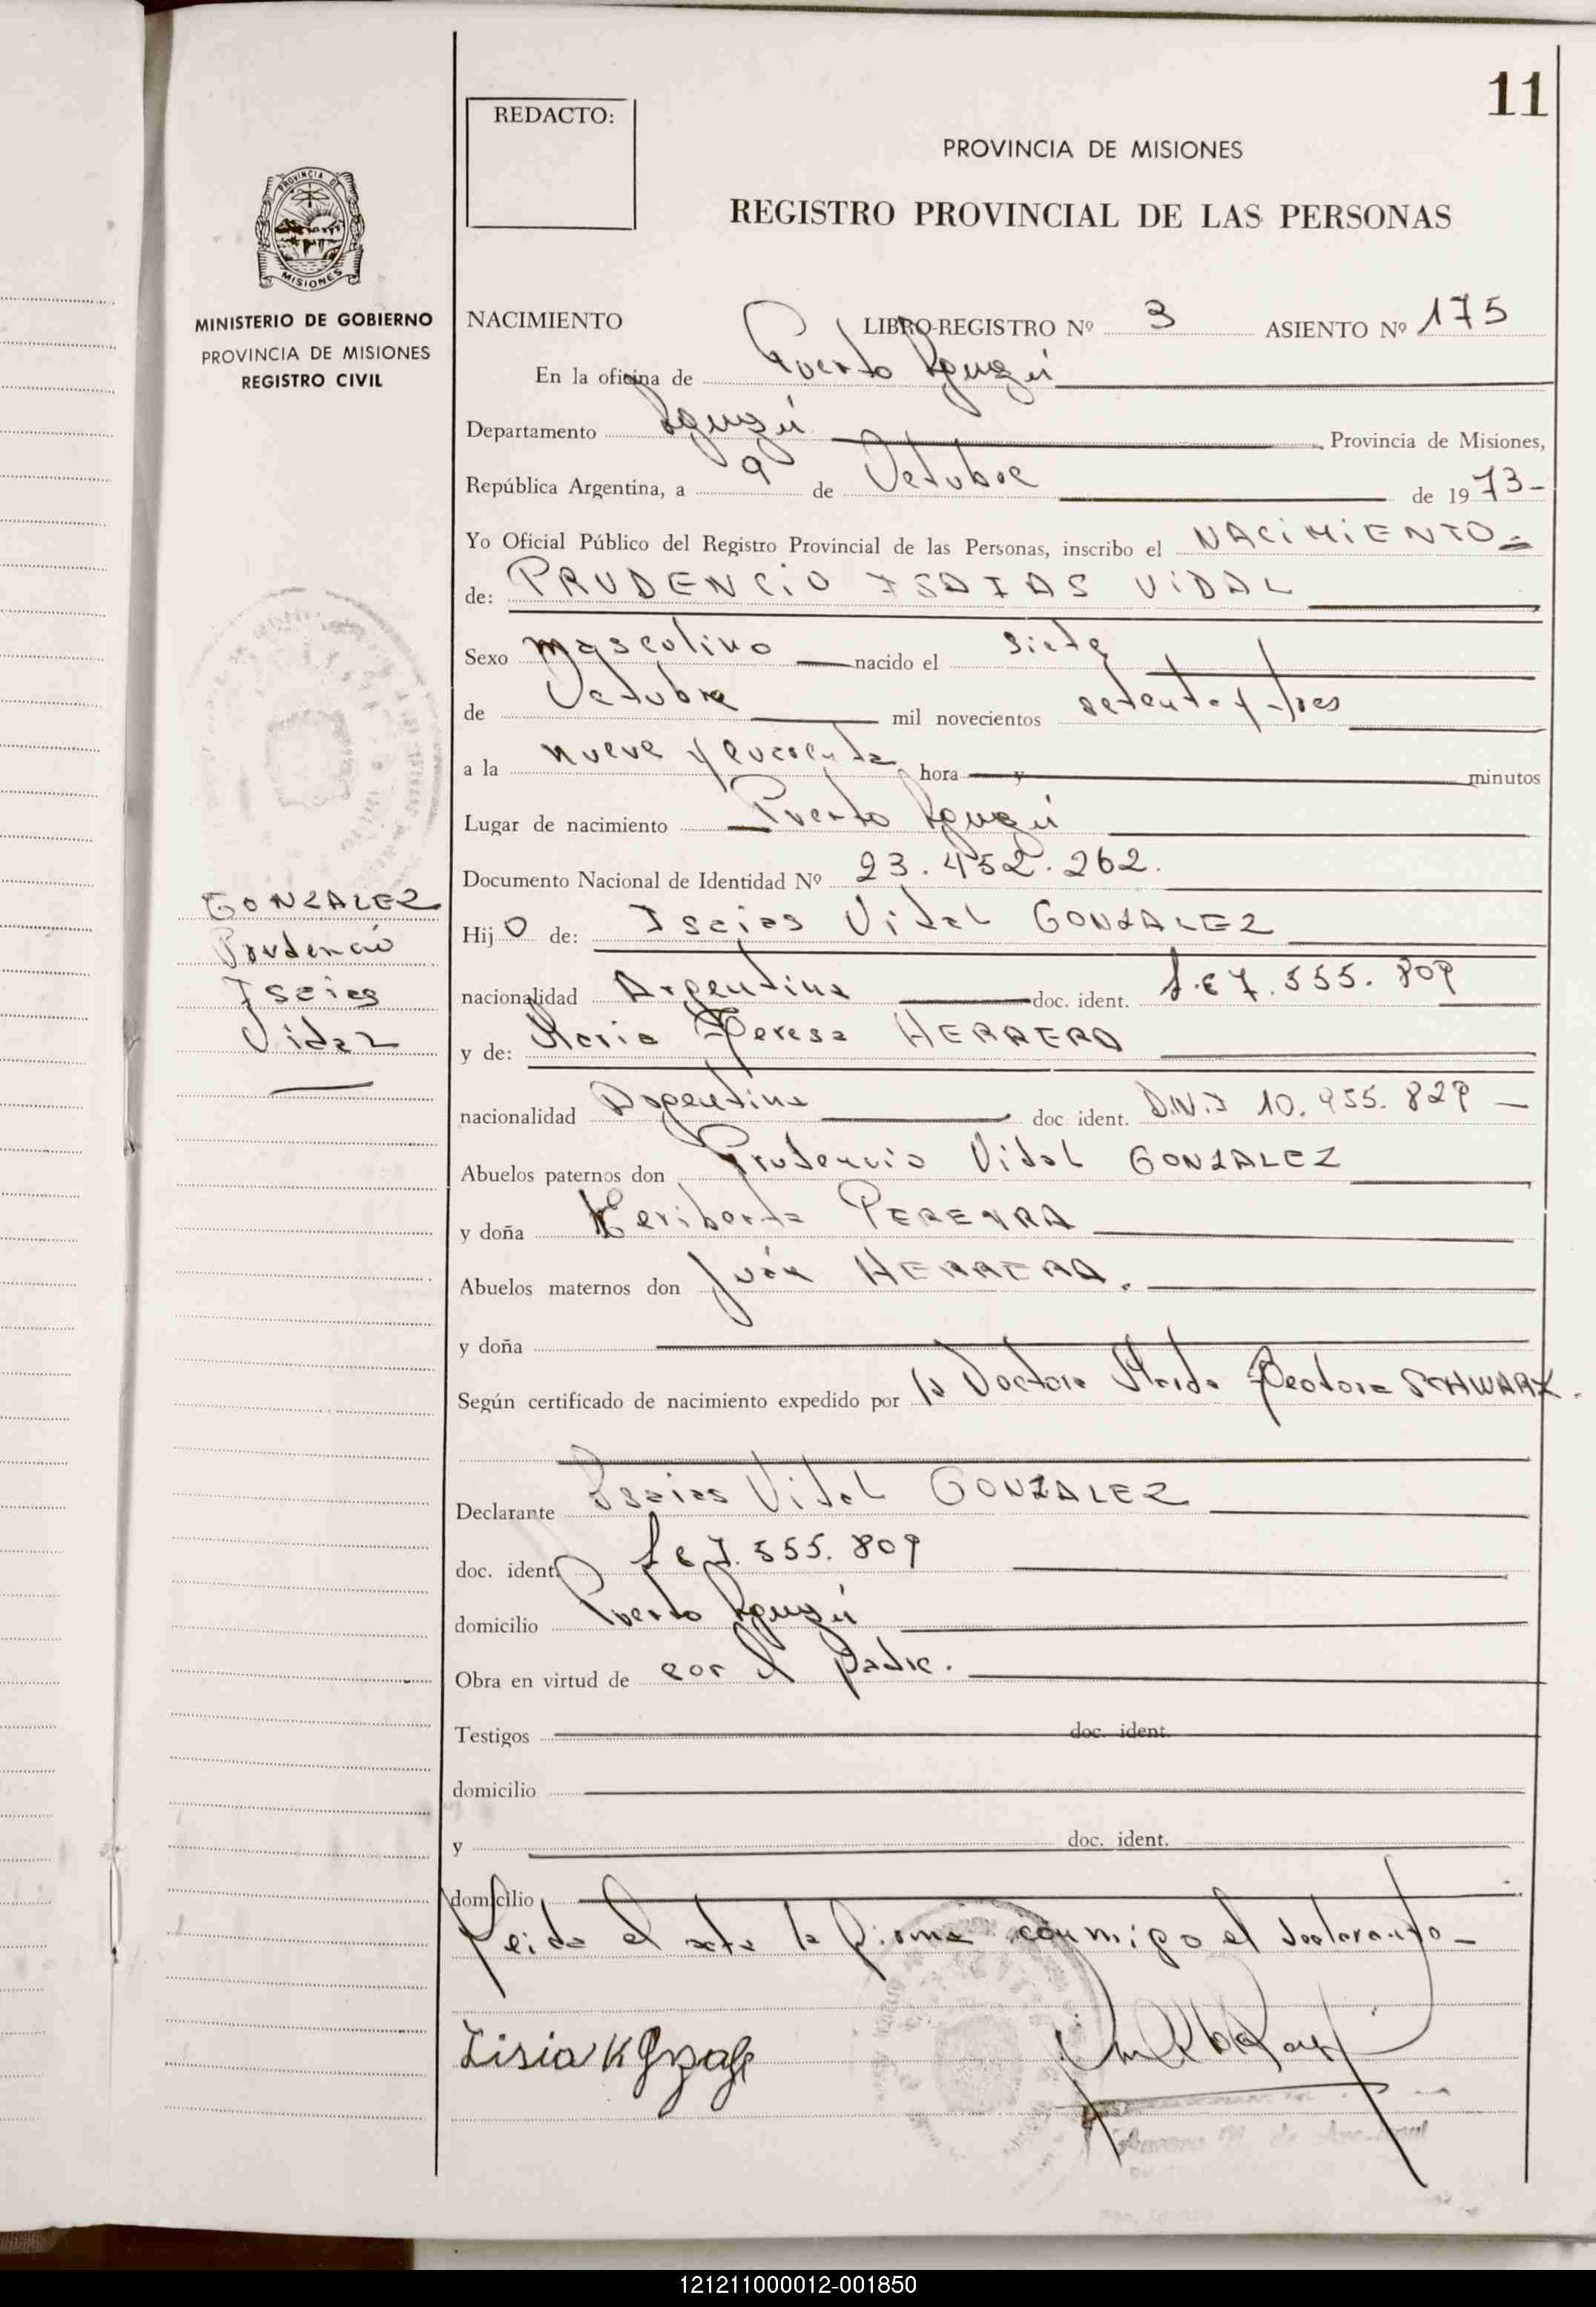 11
REDACTO:
PROVINCIA DE MISIONES
REGISTRO PROVINCIAL DE LAS PERSONAS
PROVINCIA DE
MISIONES
MINISTERIO DE GOBIERNO
PROVINCIA DE MISIONES
REGISTRO CIVIL
GONZALEZ
Prudencio
Isaias
Vidal
NACIMIENTO LIBRO-REGISTRO Nº 3 ASIENTO Nº 175
En la oficina de Puerto Iguazú
Departamento Iguazú Provincia de Misiones,
República Argentina, a 9 de Octubre de 1973-
Yo Oficial Público del Registro Provincial de las Personas, inscribo el NACIMIENTO
de: PRUDENCIO ISAIAS VIDAL
Sexo masculino nacido el siete
de Octubre mil novecientos setenta y tres
a la nueve y cuarenta hora y minutos
Lugar de nacimiento Puerto Iguazú
Documento Nacional de Identidad Nº 23.452.262.
Hijo de: Isaias Vidal GONZALEZ
nacionalidad Argentina doc. ident. L.E 7.555.809
y de: Maria Teresa HERRERA
nacionalidad Argentina doc ident. D.N.I 10.955.829 -
Abuelos paternos don Prudencio Vidal GONZALEZ
y doña Heriberta PEREYRA
Abuelos maternos don Juán HERRERA.
y doña
Según certificado de nacimiento expedido por la Doctora Teodora SCHWARZ.
Declarante Isaias Vidal GONZALEZ
doc. ident. L.E 7.555.809
domicilio Puerto Iguazú
Obra en virtud de ser el padre.
Testigos doc. ident.
domicilio
y doc. ident.
domicilio
Leida el acta la firma conmigo el declarante-
121211000012-001850